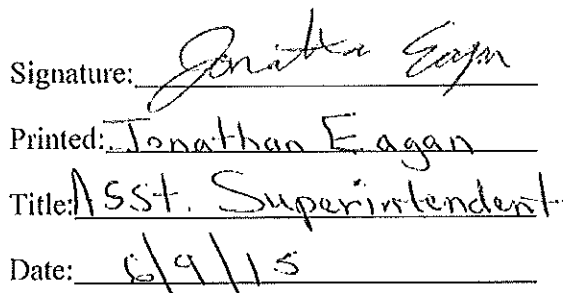 Signature: Jonathan Eagan
Printed: Jonathan Eagan
Title: Asst. Superintendent
Date: 6/9/15